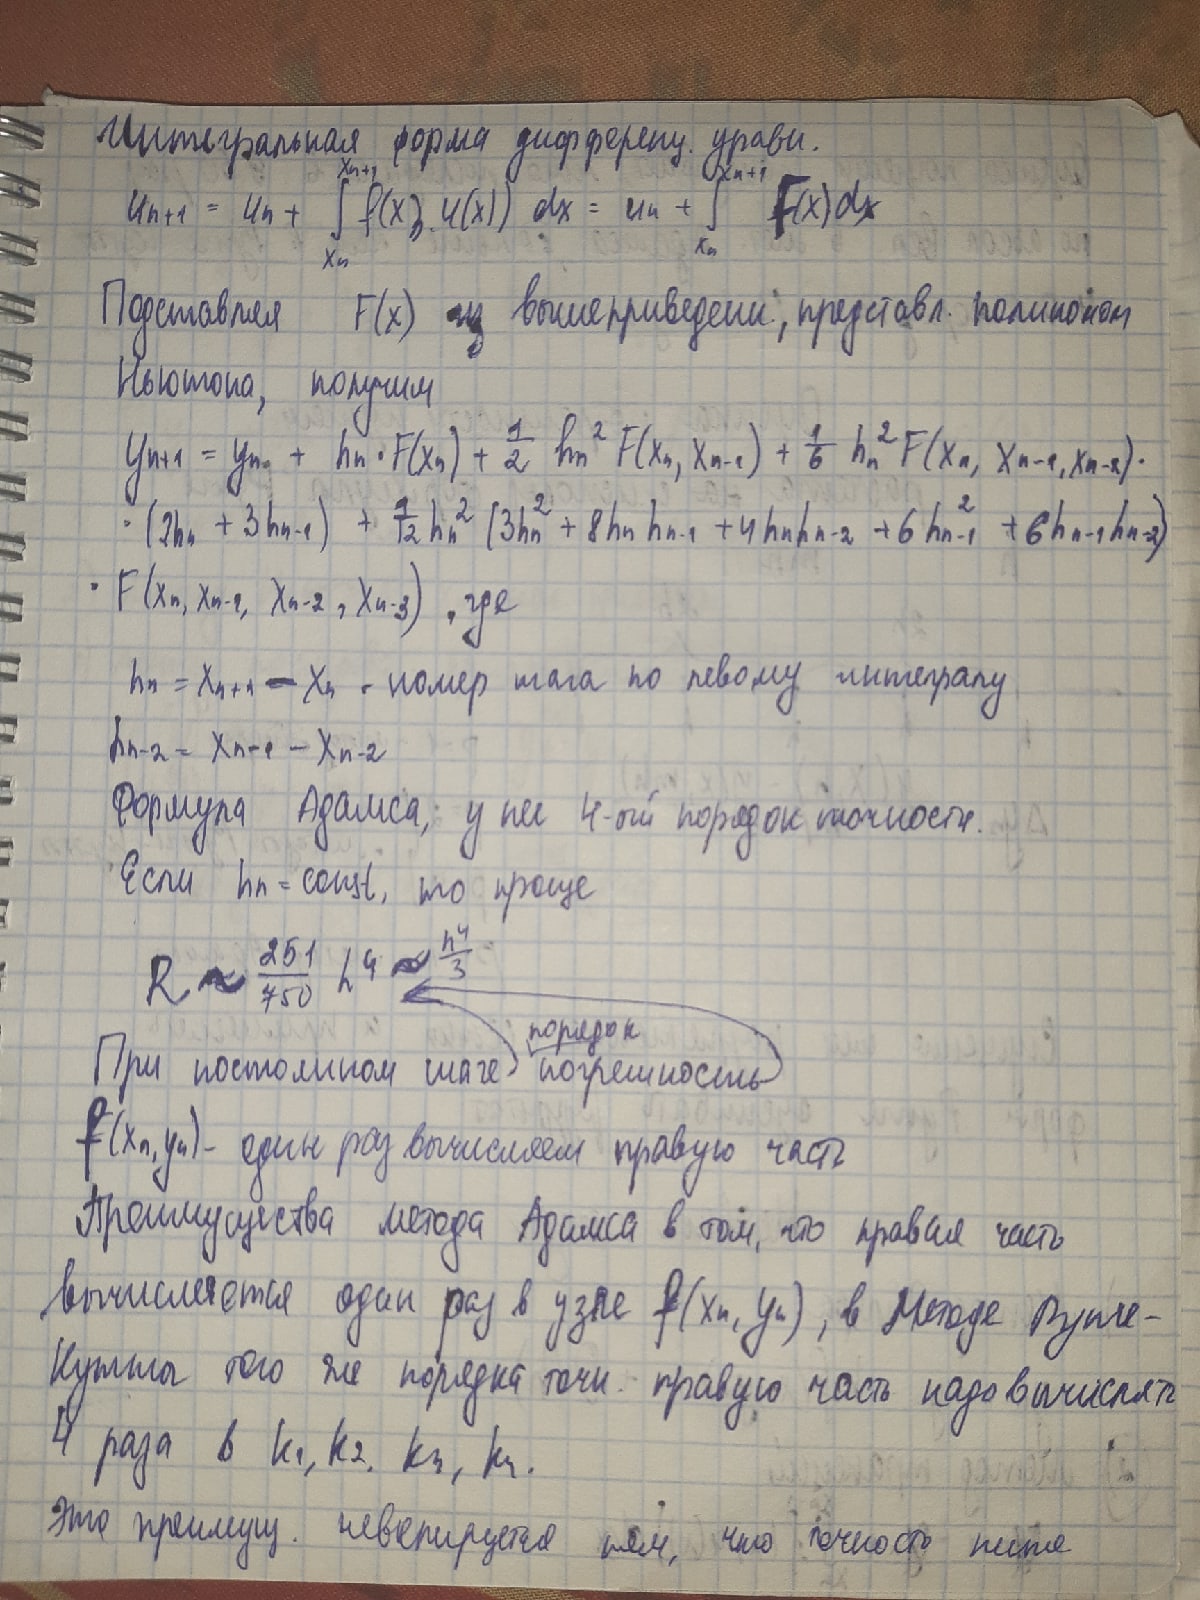 Интегральная форма дифференц. уравн.
u_{n+1} = u_n + ∫_{x_n}^{x_{n+1}} f(x, u(x)) dx = u_n + ∫_{x_n}^{x_{n+1}} F(x) dx
Подставляя F(x) из вышеприведенн., представл. полиномом
Ньютона, получим
y_{n+1} = y_n + h_n · F(x_n) + 1/2 h_n^2 F(x_n, x_{n-1}) + 1/6 h_n^2 F(x_n, x_{n-1}, x_{n-2}) ·
· (2h_n + 3h_{n-1}) + 1/12 h_n^2 (3h_n^2 + 8h_n h_{n-1} + 4h_n h_{n-2} + 6h_{n-1}^2 + 6h_{n-1} h_{n-2})
· F(x_n, x_{n-1}, x_{n-2}, x_{n-3}), где
h_n = x_{n+1} - x_n - номер шага по левому интегралу
h_{n-2} = x_{n-1} - x_{n-2}
Формула Адамса, у нее 4-ый порядок точности.
Если h_n = const, то проще
R ≈ 251/750 h^4 ≈ h^4/3
порядок
При постоянном шаге погрешность
f(x_n, y_n) - один раз вычисляем правую часть
Преимущества метода Адамса в том, что правая часть
вычисляется один раз в узле f(x_n, y_n), в Методе Рунге-
Кутты того же порядка точн. правую часть надо вычислять
4 раза в k_1, k_2, k_3, k_4.
Это преимущ. нивелируется тем, что точность ниже